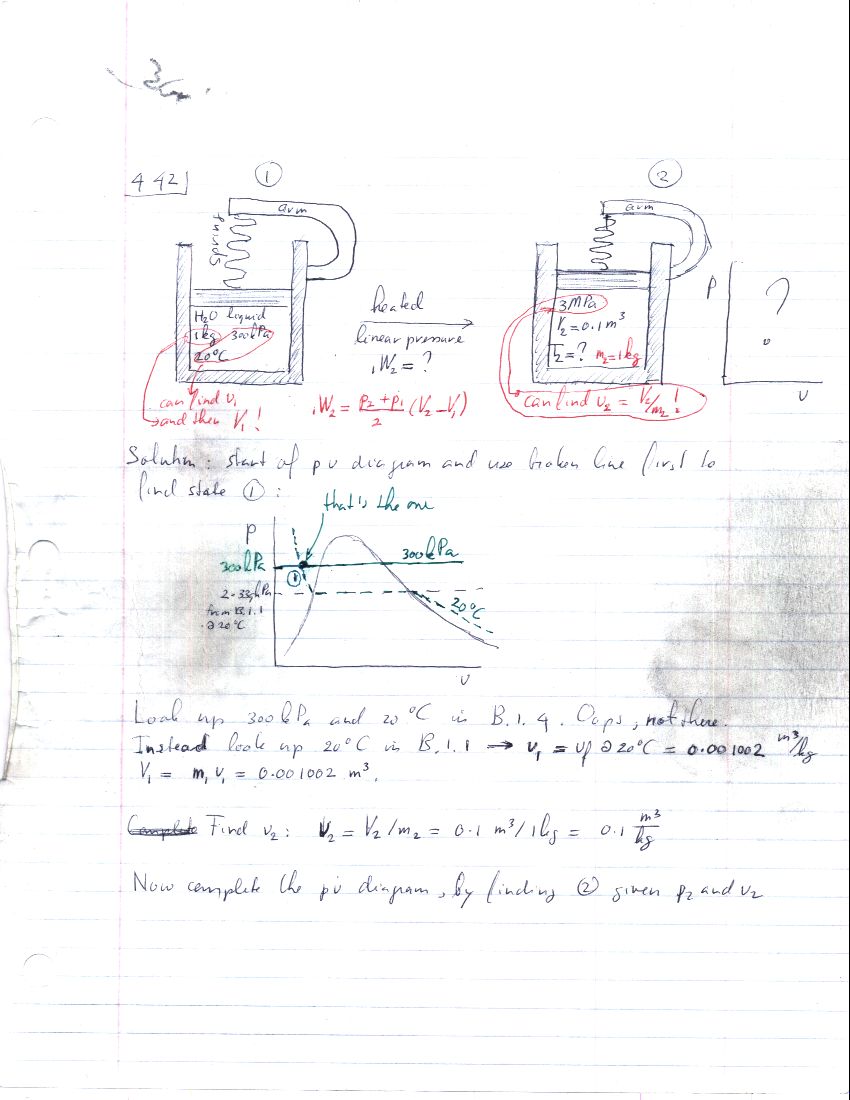 4 42
1
2
arm
arm
spring
H₂O liquid
1kg 300kPa
20°C
heated
linear pressure
₁W₂ = ?
3MPa
V₂ = 0.1 m³
T₂ = ? m₂ = 1kg
P
?
v
can find v₁
and then V₁ !
₁W₂ = (p₂ + p₁)/2 (V₂ - V₁)
can find v₂ = V₂/m₂ !
Solution: start of pv diagram and use broken line first to
find state ① :
that's the one
P
300kPa
300kPa
①
2.339kPa
from B.1.1
@ 20°C
20°C
v
Look up 300kPa and 20°C in B.1.4. Oops, not there.
Instead look up 20°C in B.1.1 → v₁ = vf @ 20°C = 0.001002 m³/kg
V₁ = m₁ v₁ = 0.001002 m³.
Complete Find v₂: v₂ = V₂/m₂ = 0.1 m³/1kg = 0.1 m³/kg
Now complete the pv diagram, by finding ② given p₂ and v₂